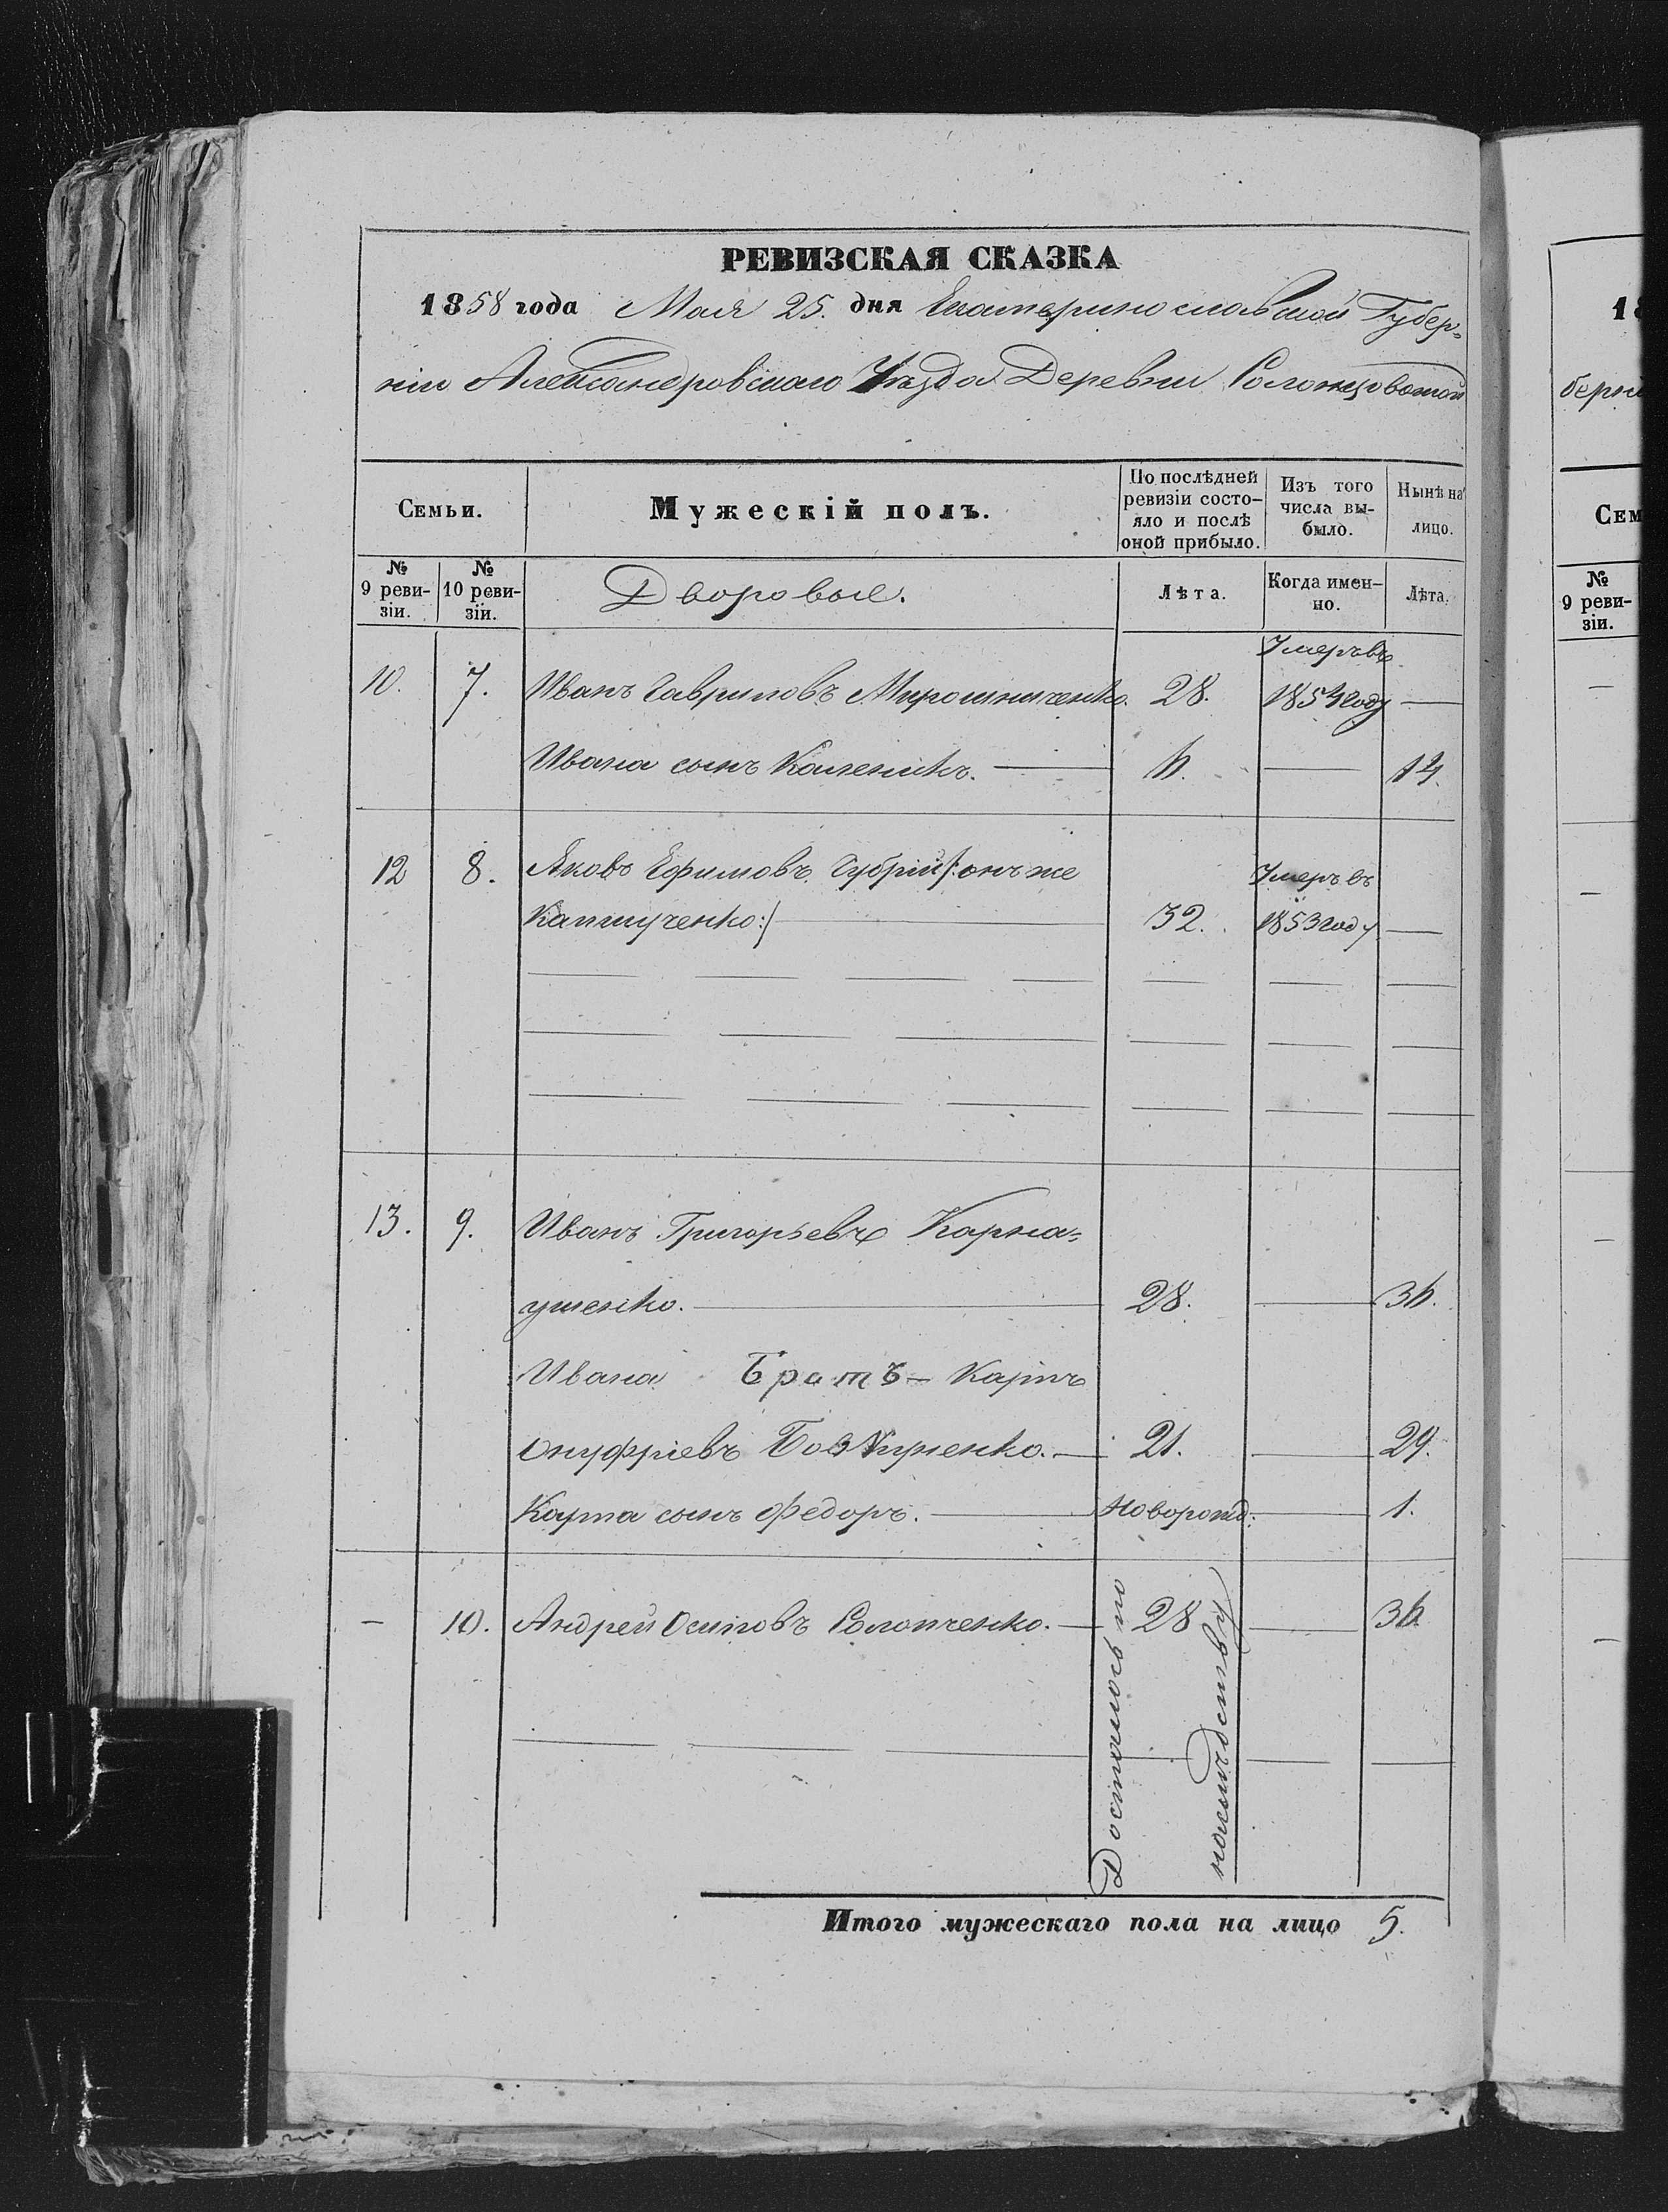 РЕВИЗСКАЯ СКАЗКА
1858 года Мая 25. дня Екатеринославской Губер=
ніи Александровскаго Уѣзда Деревни Солонцоватой
Семьи.
Мужескій полъ.
По послѣдней ревизіи состо-
яло и послѣ
оной прибыло.
Изъ того
числа вы-
было.
Нынѣ на
лицо.
№
9 реви-
зіи.
№
10 реви-
зіи.
Дворовые.
Лѣта.
Когда имен-
но.
Лѣта.
10. 7. Иванъ Гавриловъ Мирошниченко. 28. Умеръ въ 1854 году —
Ивана сынъ Каленикъ. — 6. — 14.
12 8. Яковъ Ефимовъ Губрій /:онъ же
Капшученко:/ 32. Умеръ въ 1853 году —
13. 9. Иванъ Григорьевъ Карна=
ушенко. — 28. — 36.
Ивана Братъ — Карпъ
Онуфріевъ — 21. — 29.
Карпа сынъ Федоръ. — Новорожд: — 1.
— 10. Андрей Осиповъ Солопченко. — 28 — 36
Досталось по
наслѣдству
Итого мужескаго пола на лицо 5.
18
берні
Сем
№
9 реви-
зіи.